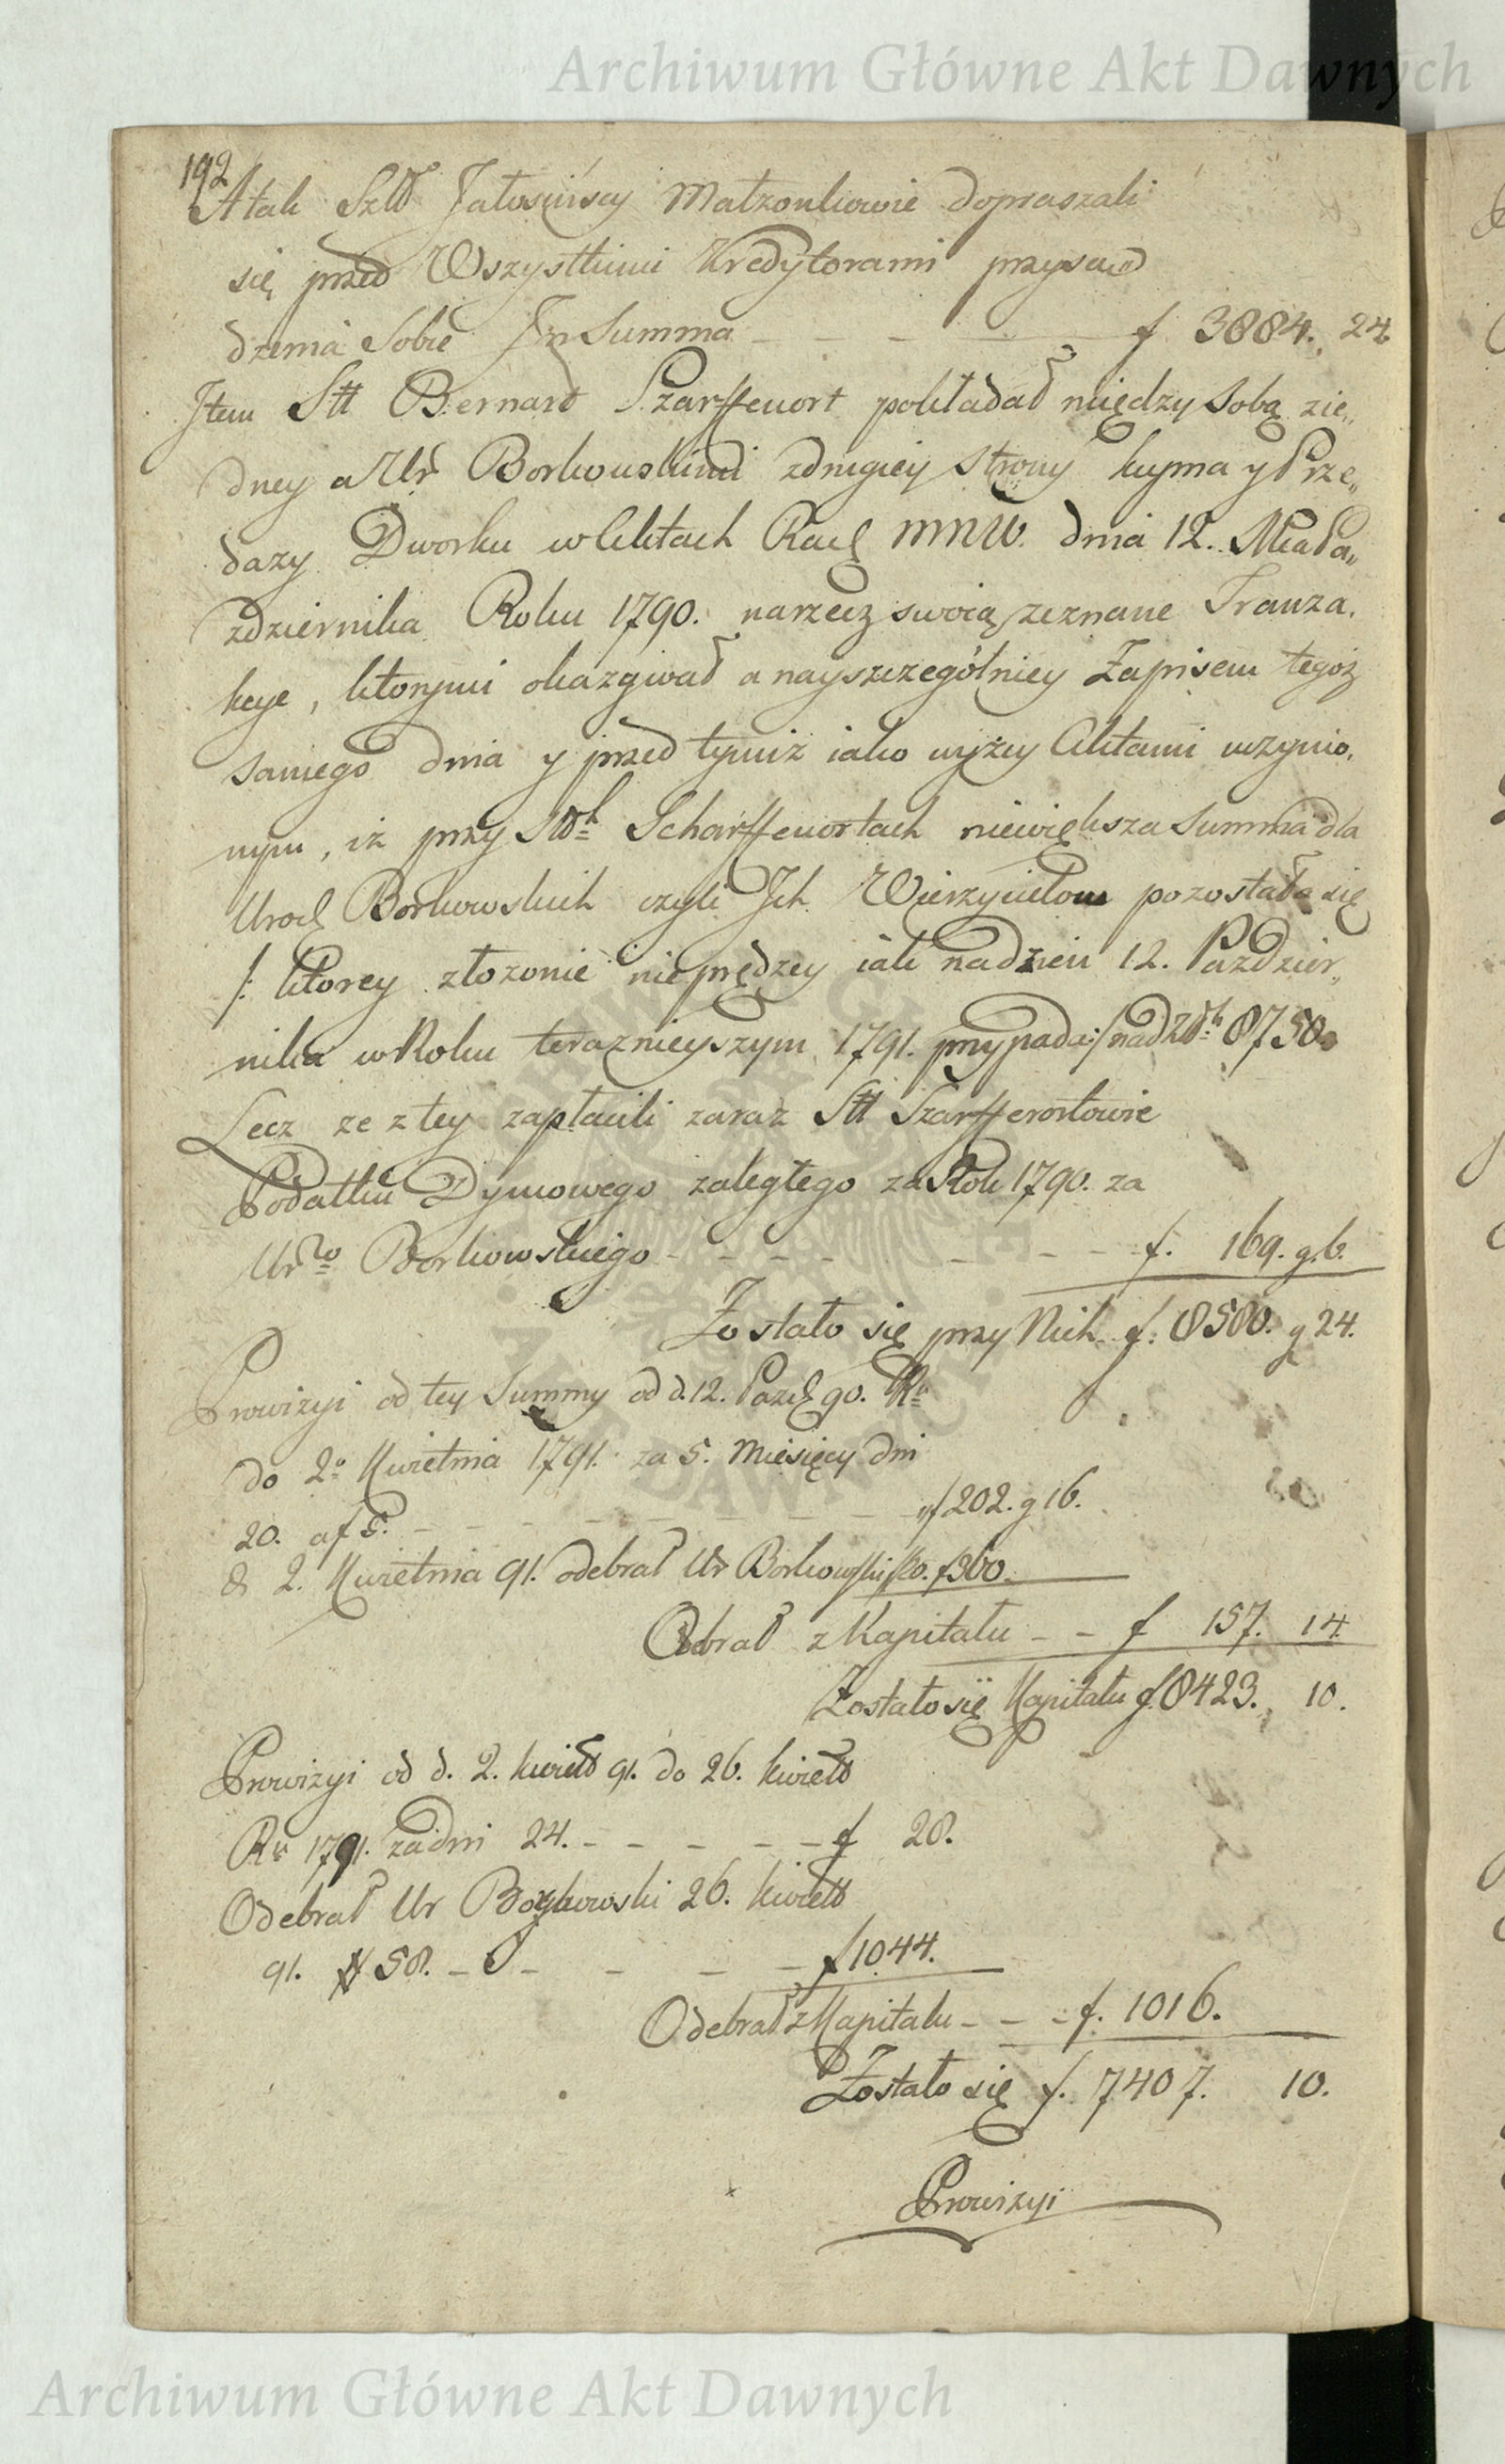 Archiwum Główne Akt Dawnych
192
A tak Szld Jatoscińscy Małżonkowie dopraszali
się przed Wszystkiemi Kredytorami przysą
dzenia Sobie In Summa - - - f 3884. 24
Item Stt Bernard Szarffenort pokładał między Sobą zie„
dney a Ur Borkowskimi z drugiey Strony kupna y Prze„
dazy Dworku w Aktach Rad MNW. dnia 12. Paź„
zdziernika Roku 1790. na rzecz swoią zeznane Tranza.
kcye, ktorymi okazywał a nayszczegolniey Zapisem tegoż
Samego dnia y przed tymiż iako wyżey Aktami uczynio.
nym, iż przy Sldch Scharffenortach niewiększa Summa dla
Urod Borkowskich czyli Ich Wierzycielow pozostała się
/: ktorey złozenie nie prędzey iak na dzień 12. Pazdzier„
nika w Roku teraznieyszym 1791. przypada :/ nad Złch 8750.
Lecz ze z tey zapłacili zaraz Stt Szarffenortowie
Podatku Dymowego zaległego za Rok 1790. za
Urgo Borkowskiego - - - - - - - f. 169. g 6.
Zostało się przy Nich f. 8580. g 24.
Prowizyi od tey Summy od d. 12. Pazd 90. Ru
do 2o Kwietnia 1791. za 5. Miesięcy dni
20. a f 5. - - - - - - - - f 202. g 16.
d 2. Kwietnia 91. odebrał Ur Borkowski 20. f 360.
Odebrał z Kapitału - - f 157. 14.
Zostało się Kapitału f. 8423. 10.
Prowizyi od d. 2. kwiet 91. do 26. kwiet
Ru 1791. za dni 24. - - - - - f 28.
Odebrał Ur Borkowski 26. kwiet
91. # 58. - - - - - f 1044.
Odebrał z Kapitału - - - f. 1016.
Zostało się f. 7407. 10.
Prowizyi
Archiwum Główne Akt Dawnych